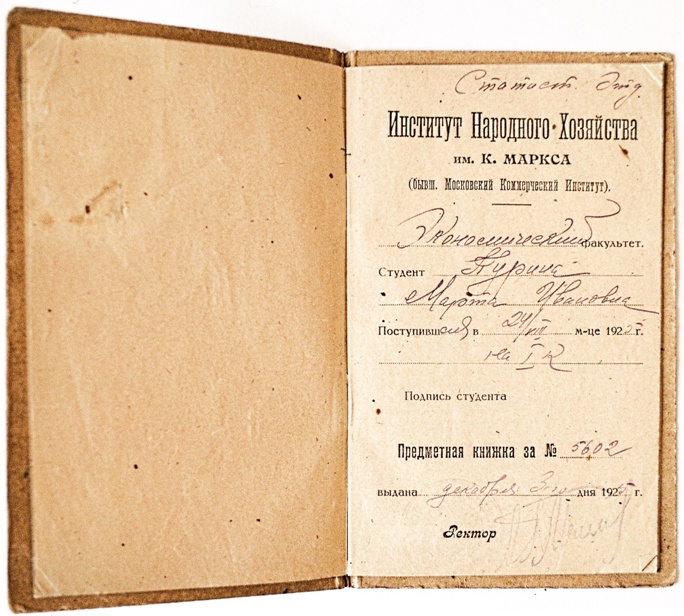 Статист. Отд.
Институт Народного Хозяйства
им. К. МАРКСА
(бывш. Московский Коммерческий Институт).
Экономический факультет.
Студент
Марта Ивановна
Поступившая в 24/VIII м-це 1925 г.
на I к
Подпись студента
Предметная книжка за № 5602
выдана декабря 3го дня 1925 г.
Ректор